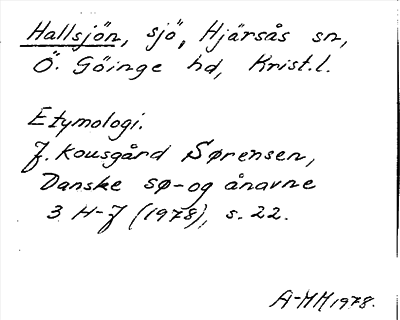 Hallsjön, sjö, Hjärsås sn,
Ö. Göinge hd, Krist.l.
Etymologi.
J. Kousgård Sørensen,
Danske sø- og ånavne
3 H-J (1978), s. 22.
A-MM 1978.